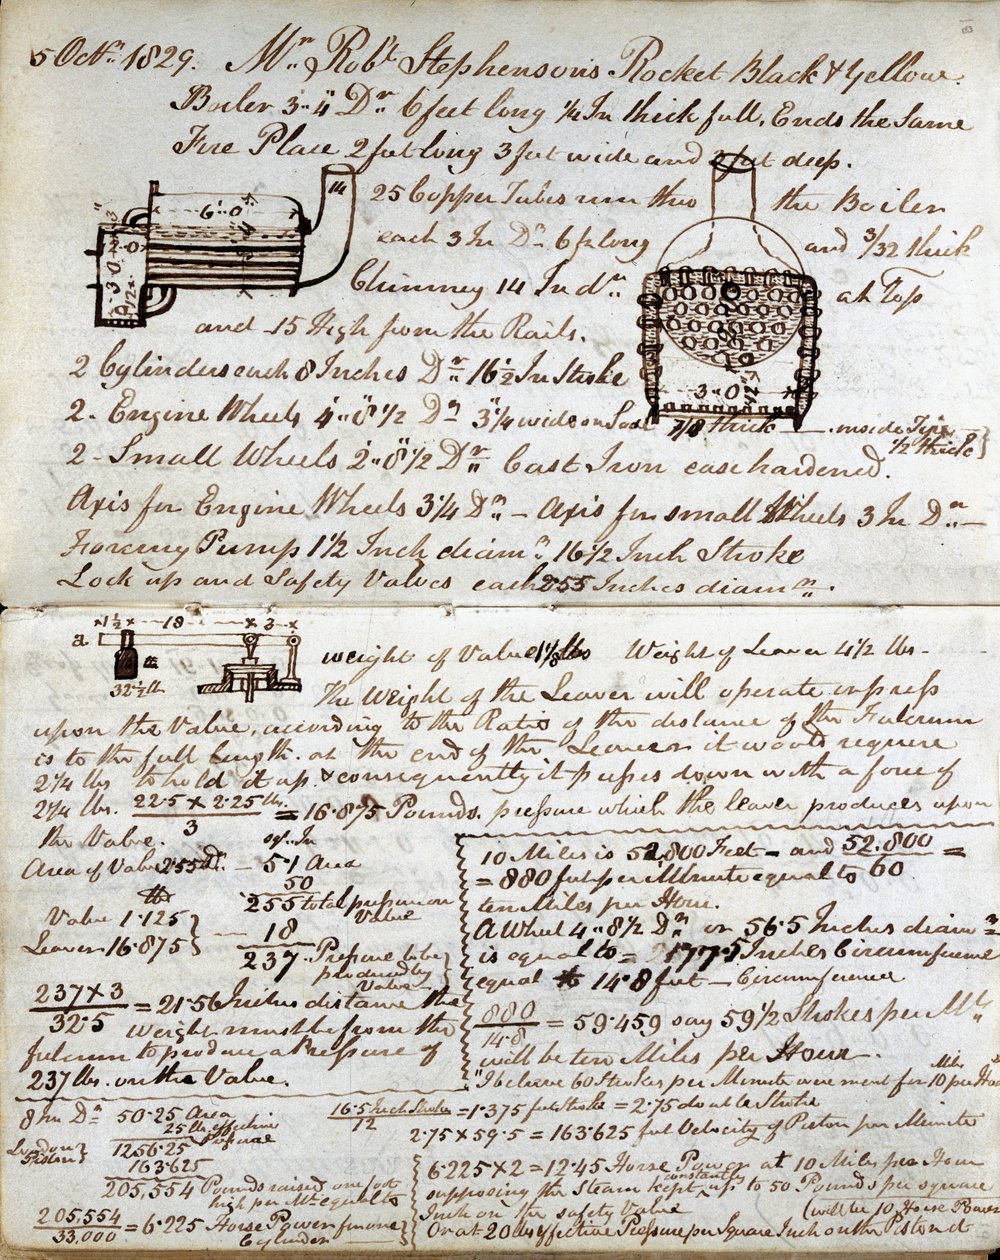 5 Octr. 1829. Mr. Robt. Stephensons Rocket Black & Yellow.
Boiler 3..4" Dr. 6 feet long 1/4 In thick full. Ends the Same
Fire Place 2 feet long 3 feet wide and 3 feet deep.
14
25 Copper Tubes run thro the Boiler
6..0
each 3 In Dr. 6 ft long and 3/32 thick
2..0
3..0
Chimney 14 In dr. at Top
and 15 High from the Rails.
2 Cylinders each 8 Inches Dr. 16 1/2 In Stroke
3..0
2 - Engine Wheels 4'..8" 1/2 Dr. 3 3/4 wide on Sole
7/8 thick inside Tire
1/2 thick }
2 - Small Wheels 2'..8" 1/2 Dr. Cast Iron case hardened.
Axis for Engine Wheels 3 1/4 Dr. - Axis for small Wheels 3 In Dr. -
Forcing Pump 1 1/2 Inch diamr. 16 1/2 Inch Stroke
Lock up and Safety Valves each 2.55 Inches diamr.
1 1/2 18 3
a
32 1/2 lb
weight of Valve 1 1/8 lbs Weight of Leaver 4 1/2 lbs -
The Weight of the Leaver will operate or press
upon the Valve, according to the Ratio of the distance of the Fulcrum
is to the full length. at the end of the Leaver it would require
2 1/4 lbs to hold it up & consequently it presses down with a force of
2 1/4 lbs. 22.5 x 2.25 lbs. / 3 = 16.875 Pounds. pressure which the leaver produces upon
the Valve.
sqr. In
Area of Valve 2.55 Dr. - 5.1 Area
50
255 total pressure on Valve
lb
Valve 1.125
Leaver 16.875 } - 18
237 - Pressure to be produced by Valve
237 x 3 / 32.5 = 21.56 Inches distance the
weight must be from the
fulcrum to produce a Pressure of
237 lbs. on the Valve.
10 Miles is 52,800 Feet - and 52.800 / 60 =
= 880 feet per Minute equal to
ten Miles per Hour.
A Wheel 4..8 1/2 Dr. or 56.5 Inches diam =
is equal to = 177.5 Inches Circumference
equal to 14.8 feet - Circumference
880 / 14.8 = 59.459 say 59 1/2 Strokes per Mt.
will be ten Miles per Hour.
"I believe 60 Strokes per Minute were meant for 10 Miles per Hour"
8 In Dr. 50.25 Area
25 lbs. effective Pressure
London Piston } 1256.25
163.625
205,554 Pounds raised one foot
high per Mt. equal to
205,554 / 33,000 = 6.225 Horse Power for one
Cylinder
16.5 Inch Stroke / 12 = 1.375 feet Stroke = 2.75 double Stroke
2.75 x 59.5 = 163.625 feet Velocity of Piston per Minute
6.225 x 2 = 12.45 Horse Power at 10 Miles per Hour
supposing the Steam kept constantly up to 50 Pounds per square
Inch on the safety Valve (will be 10 Horse Power
Or at 20 lbs effective Pressure per Square Inch on the Piston it